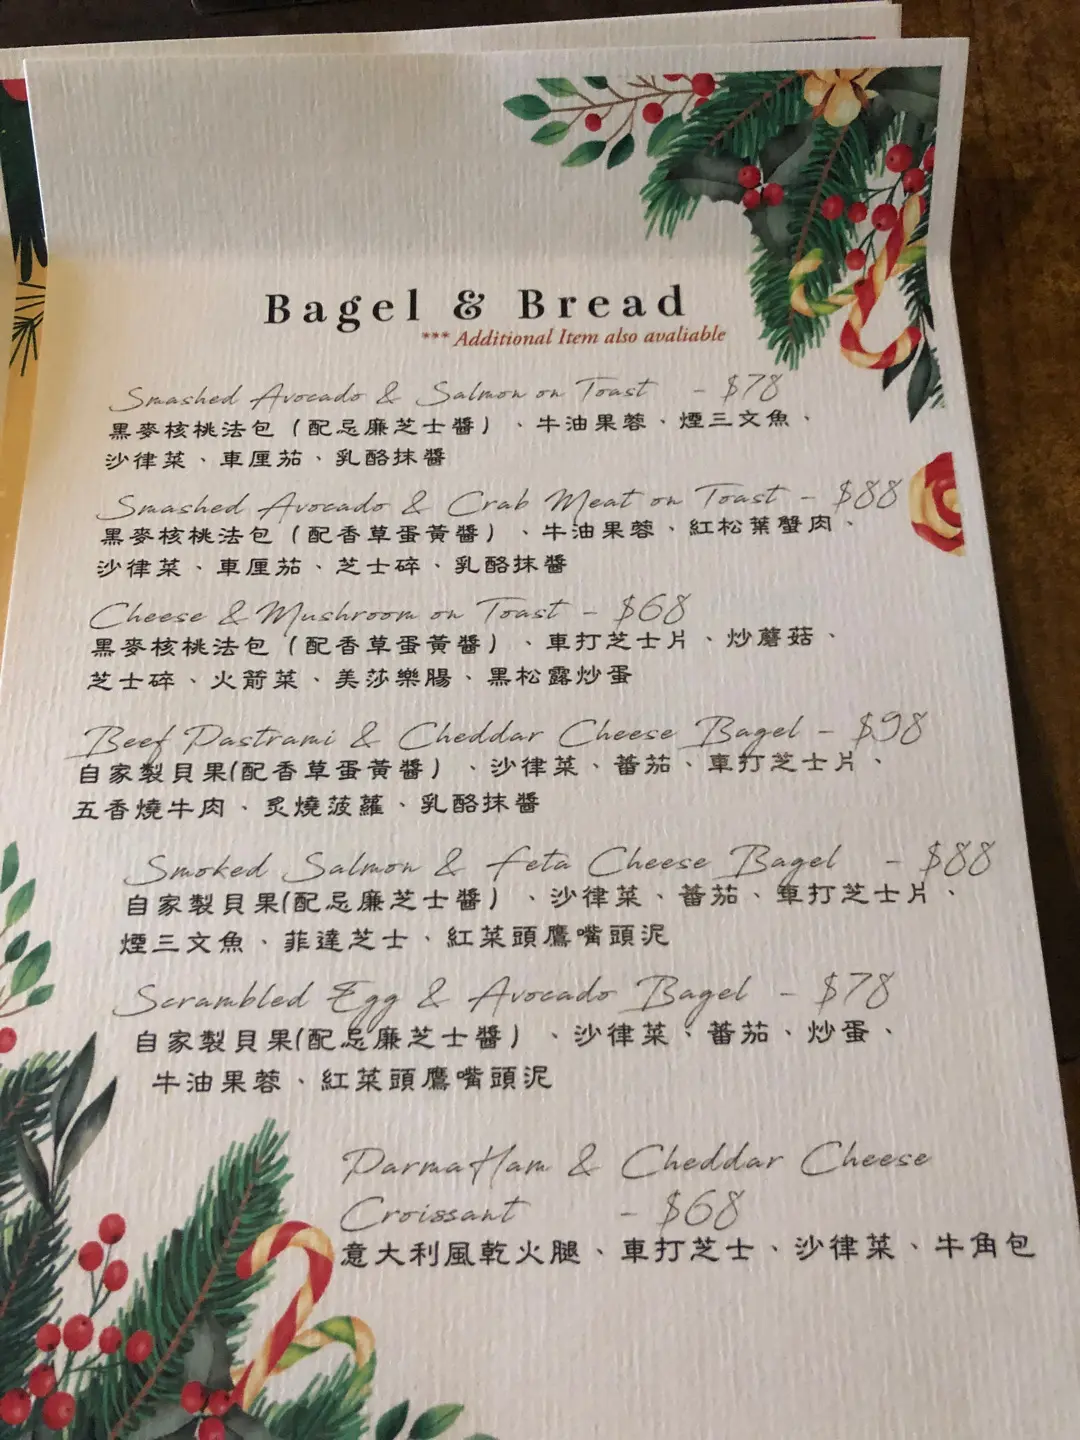 Bagel & Bread
*** Additional Item also avaliable
Smashed Avocado & Salmon on Toast - $78
黑麥核桃法包（配忌廉芝士醬）、牛油果蓉、煙三文魚、
沙律菜、車厘茄、乳酪抹醬
Smashed Avocado & Crab Meat on Toast - $88
黑麥核桃法包（配香草蛋黃醬）、牛油果蓉、紅松葉蟹肉、
沙律菜、車厘茄、芝士碎、乳酪抹醬
Cheese & Mushroom on Toast - $68
黑麥核桃法包（配香草蛋黃醬）、車打芝士片、炒蘑菇、
芝士碎、火箭菜、美莎樂腸、黑松露炒蛋
Beef Pastrami & Cheddar Cheese Bagel - $98
自家製貝果(配香草蛋黃醬）、沙律菜、蕃茄、車打芝士片、
五香燒牛肉、炙燒菠蘿、乳酪抹醬
Smoked Salmon & Feta Cheese Bagel - $88
自家製貝果(配忌廉芝士醬）、沙律菜、蕃茄、車打芝士片、
煙三文魚、菲達芝士、紅菜頭鷹嘴頭泥
Scrambled Egg & Avocado Bagel - $78
自家製貝果(配忌廉芝士醬）、沙律菜、蕃茄、炒蛋、
牛油果蓉、紅菜頭鷹嘴頭泥
Parma Ham & Cheddar Cheese
Croissant - $68
意大利風乾火腿、車打芝士、沙律菜、牛角包